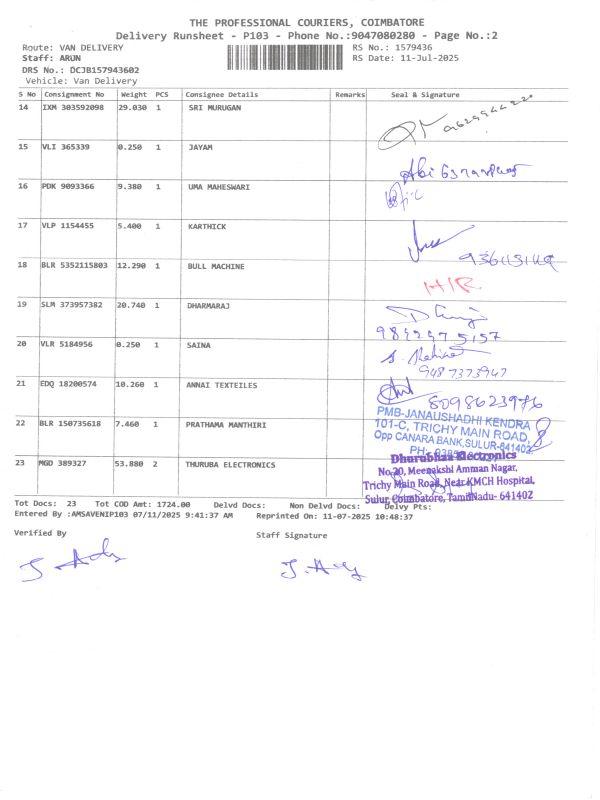 THE PROFESSIONAL COURIERS, COIMBATORE
Delivery Runsheet - P103 - Phone No.:9047080280 - Page No.:2
Route: VAN DELIVERY RS No.: 1579436
Staff: ARUN RS Date: 11-Jul-2025
DRS No.: DCJB157943602
Vehicle: Van Delivery
S No Consignment No Weight PCS Consignee Details Remarks Seal & Signature
14 IXM 303592098 29.030 1 SRI MURUGAN
15 VLI 365339 0.250 1 JAYAM
16 PDK 9093366 9.380 1 UMA MAHESWARI
17 VLP 1154455 5.400 1 KARTHICK
18 BLR 5352115803 12.290 1 BULL MACHINE
HR
19 SLM 373957382 20.740 1 DHARMARAJ
20 VLR 5184956 0.250 1 SAINA
9487373947
21 EDQ 18200574 10.260 1 ANNAI TEXTEILES
8098623976
22 BLR 150735618 7.460 1 PRATHAMA MANTHIRI
PMB-JANAUSHADHI KENDRA
101-C, TRICHY MAIN ROAD,
Opp CANARA BANK, SULUR-641402
23 MGD 389327 53.880 2 THURUBA ELECTRONICS
Dhurubhaa Electronics
No.20, Meenakshi Amman Nagar,
Trichy Main Road, Near KMCH Hospital,
Sulur, Coimbatore, TamilNadu- 641402
Tot Docs: 23 Tot COD Amt: 1724.00 Delvd Docs: Non Delvd Docs: Delvy Pts:
Entered By :AMSAVENIP103 07/11/2025 9:41:37 AM Reprinted On: 11-07-2025 10:48:37
Verified By Staff Signature